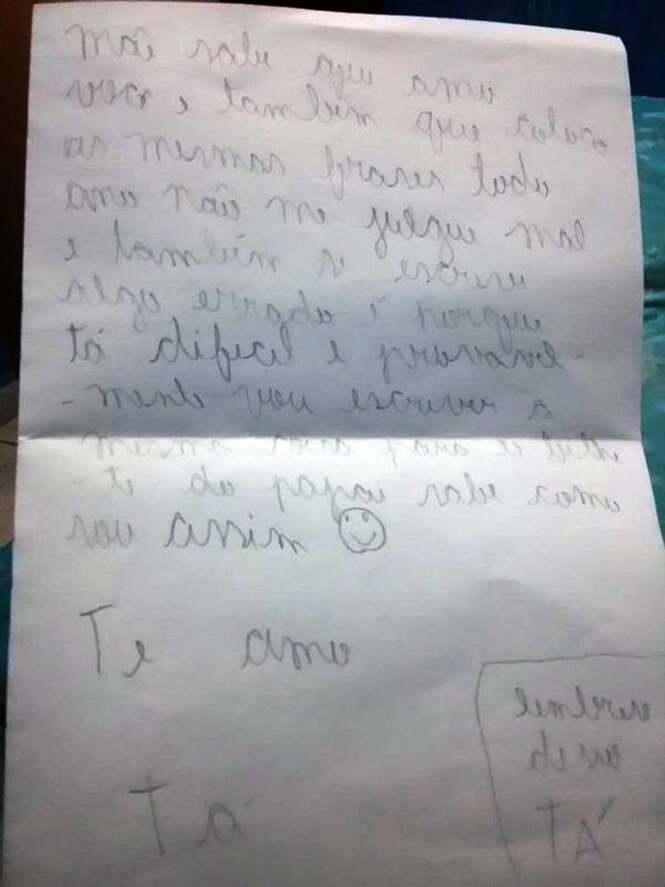 mãe sabe que amo
voce , tambem que coloco
as mesmas frases todo
ano não me julgue mal
e também se escrevi
algo errado é porque
tá dificel e provavel-
-mente vou escrever a
para o
-te do papai sabe como
sou assim
Te amo
Tá
lembre-se
disso
TÁ